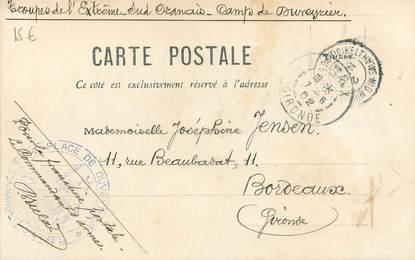 Troupes de l'Extrême-Sud Oranais - Camp de Duveyrier.
15 €
CARTE POSTALE
Ce côté est exclusivement réservé à l'adresse
BORDEAUX
GIRONDE
02
Mademoiselle Joséphine Jensen.
11, rue Beaubadat, 11
Bordeaux.
Gironde
PLACE DE DUV
Pour la franchise postale
le Commandant d'armes.